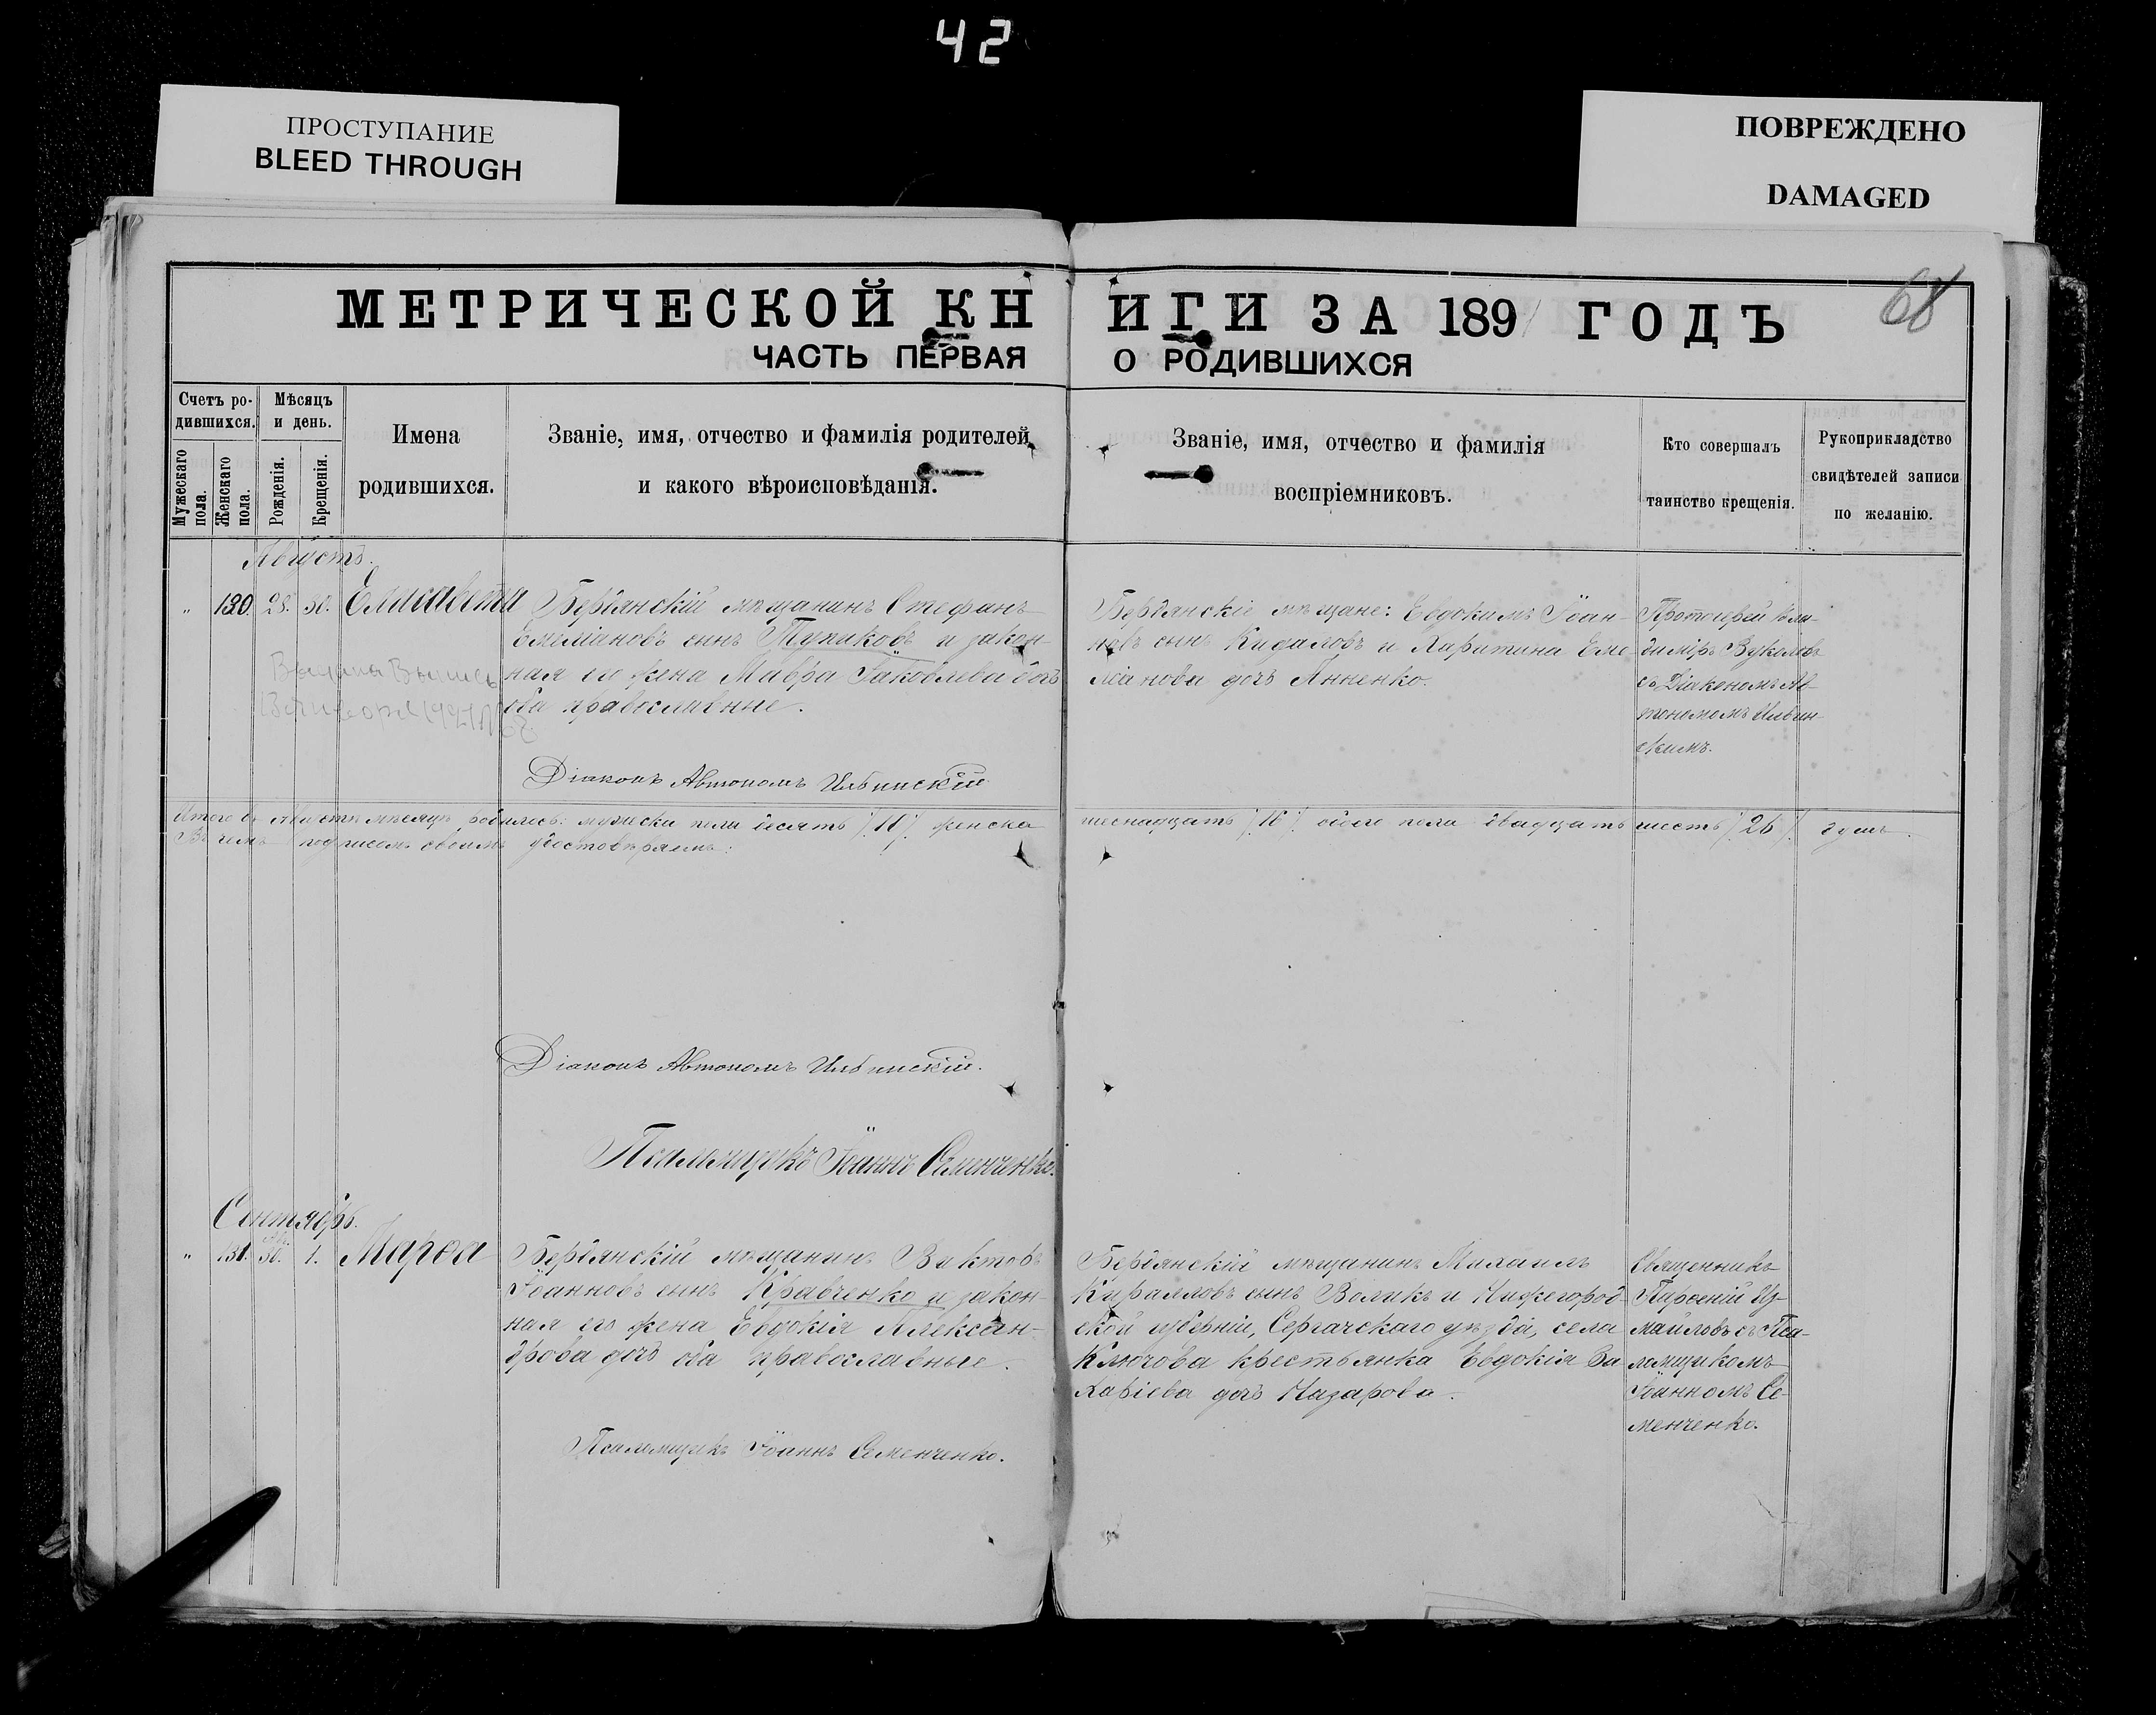 42
ПРОСТУПАНИЕ
BLEED THROUGH
ПОВРЕЖДЕНО
DAMAGED
68
МЕТРИЧЕСКОЙ КНИГИ ЗА 1891 ГОДЪ
ЧАСТЬ ПЕРВАЯ О РОДИВШИХСЯ
Счетъ родившихся.
Мужескаго пола.
Женскаго пола.
Мѣсяцъ и день.
Рожденія.
Крещенія.
Имена
родившихся.
Званіе, имя, отчество и фамилія родителей
и какого вѣроисповѣданія.
Званіе, имя, отчество и фамилія
воспріемниковъ.
Кто совершалъ
таинство крещенія.
Рукоприкладство
свидѣтелей записи
по желанію.
Августъ.
" 130. 28. 30. Елисавета
Бердянскій мѣщанинъ Стефанъ
Емеліановъ сынъ Тупиковъ и закон-
ная его жена Мавра Іаковлева дочь
оба православные.
Діаконъ Автономъ Ильинскій
Бердянскіе мѣщане: Евдокимъ Іоан-
новъ сынъ Кидаловъ и Харитина Еме-
ліанова дочь Анненко.
Протоіерей Вла-
диміръ Вуколовъ
съ Діакономъ Ав-
тономомъ Ильин-
скимъ.
Итого въ Августѣ мѣсяцѣ родилось: мужеска пола десять /10/ женска шеснадцать /16/ обоего пола двадцать шесть /26/ душъ.
Въ чемъ подписомъ своимъ удостовѣряемъ:
Діаконъ Автономъ Ильинскій.
Псаломщикъ Іоаннъ Семенченко.
Сентябрь.
" 131. Ав. 30. 1. Марѳа
Бердянскій мѣщанинъ Викторъ
Іоанновъ сынъ Кравченко и закон-
ная его жена Евдокія Алексан-
дрова дочь оба православные.
Псаломщикъ Іоаннъ Семенченко.
Бердянскій мѣщанинъ Михаилъ
Кирилловъ сынъ Воликъ и Нижегород-
ской губерніи, Сергачскаго уѣзда, села
Ключова крестьянка Евдокія За
харіева дочь Назарова.
Священникъ
Парѳеній Из-
майловъ съ Пса-
ломщикомъ
Іоанномъ Се-
менченко.